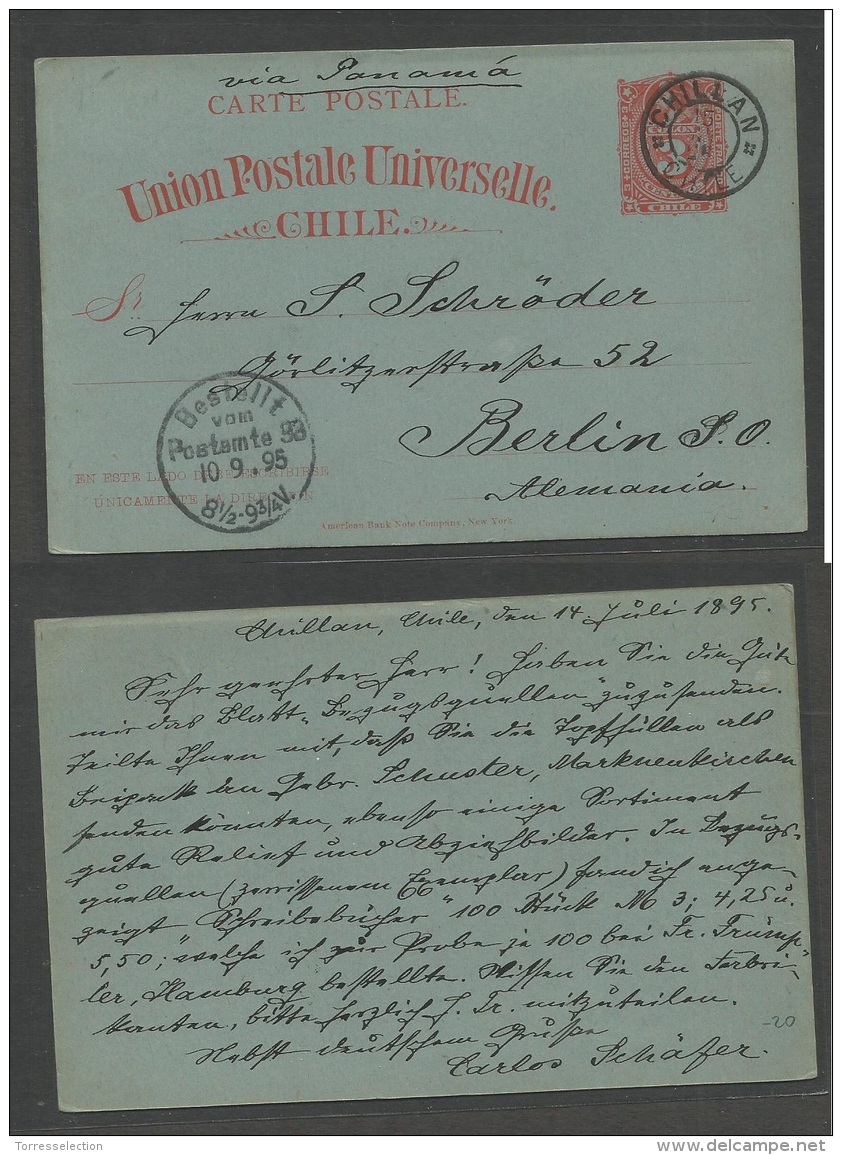 via Panamá
CARTE POSTALE.
Union Postale Universelle.
CHILE.
CORREOS
COLON
CHILE
CHILLAN
15
CHILE
Sr. Herrn S. Schröder
Görlitzerstraße 52
Berlin S.O.
Alemania.
Bestellt
vom
Postamte 33
10 9. 95
8½-9¾V.
EN ESTE LADO DEBE ESCRIBIRSE
ÚNICAMENTE LA DIRECCION
American Bank Note Company, New York.
Chillan, Chile, den 14. Juli 1895.
Sehr geehrter Herr! Haben Sie die Güte
mir das Blatt „Bezugsquellen" zuzusenden.
Teilte Ihnen mit, daß Sie die Topfhüllen als
Beipack an Gebr. Schuster, Markneukirchen
senden könnten, ebenso einige Sortiment
gute Relief und Abziehbilder. In Bezugs-
quellen (zerrissenem Exemplar) fand ich ange-
zeigt Schreibebücher "100 Stück M 3; 4,25 u.
5,50;" welche ich zur Probe je 100 bei Fr. Trümp-
ler, Hamburg bestellte. Wissen Sie den Fabri-
kanten, bitte herzlich h. Fr. mitzuteilen.
Nebst deutschem Grusse
Carlos Schäfer.
-20
Torresselection
delcampe.net